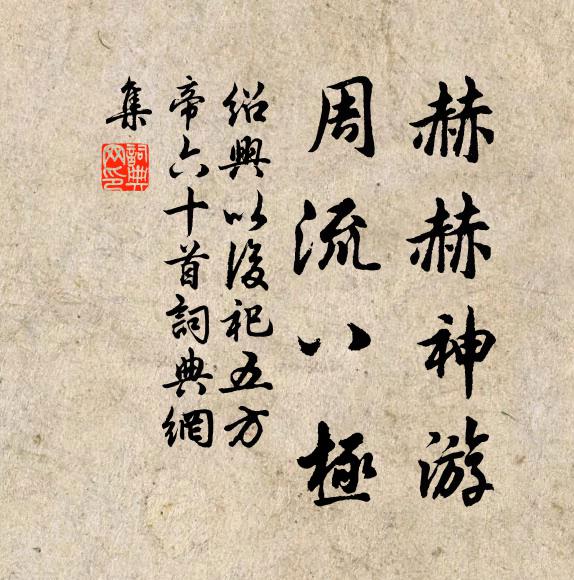 赫赫神游
周流八極
紹興以後祀五方
帝六十首詞典網
集
詞典
网印